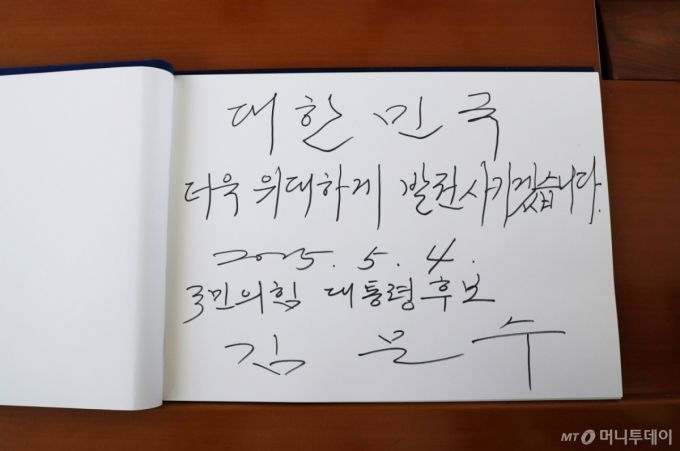 대한민국
더욱 위대하게 발전시키겠습니다.
2025. 5. 4.
국민의힘 대통령후보
김문수
MT 머니투데이